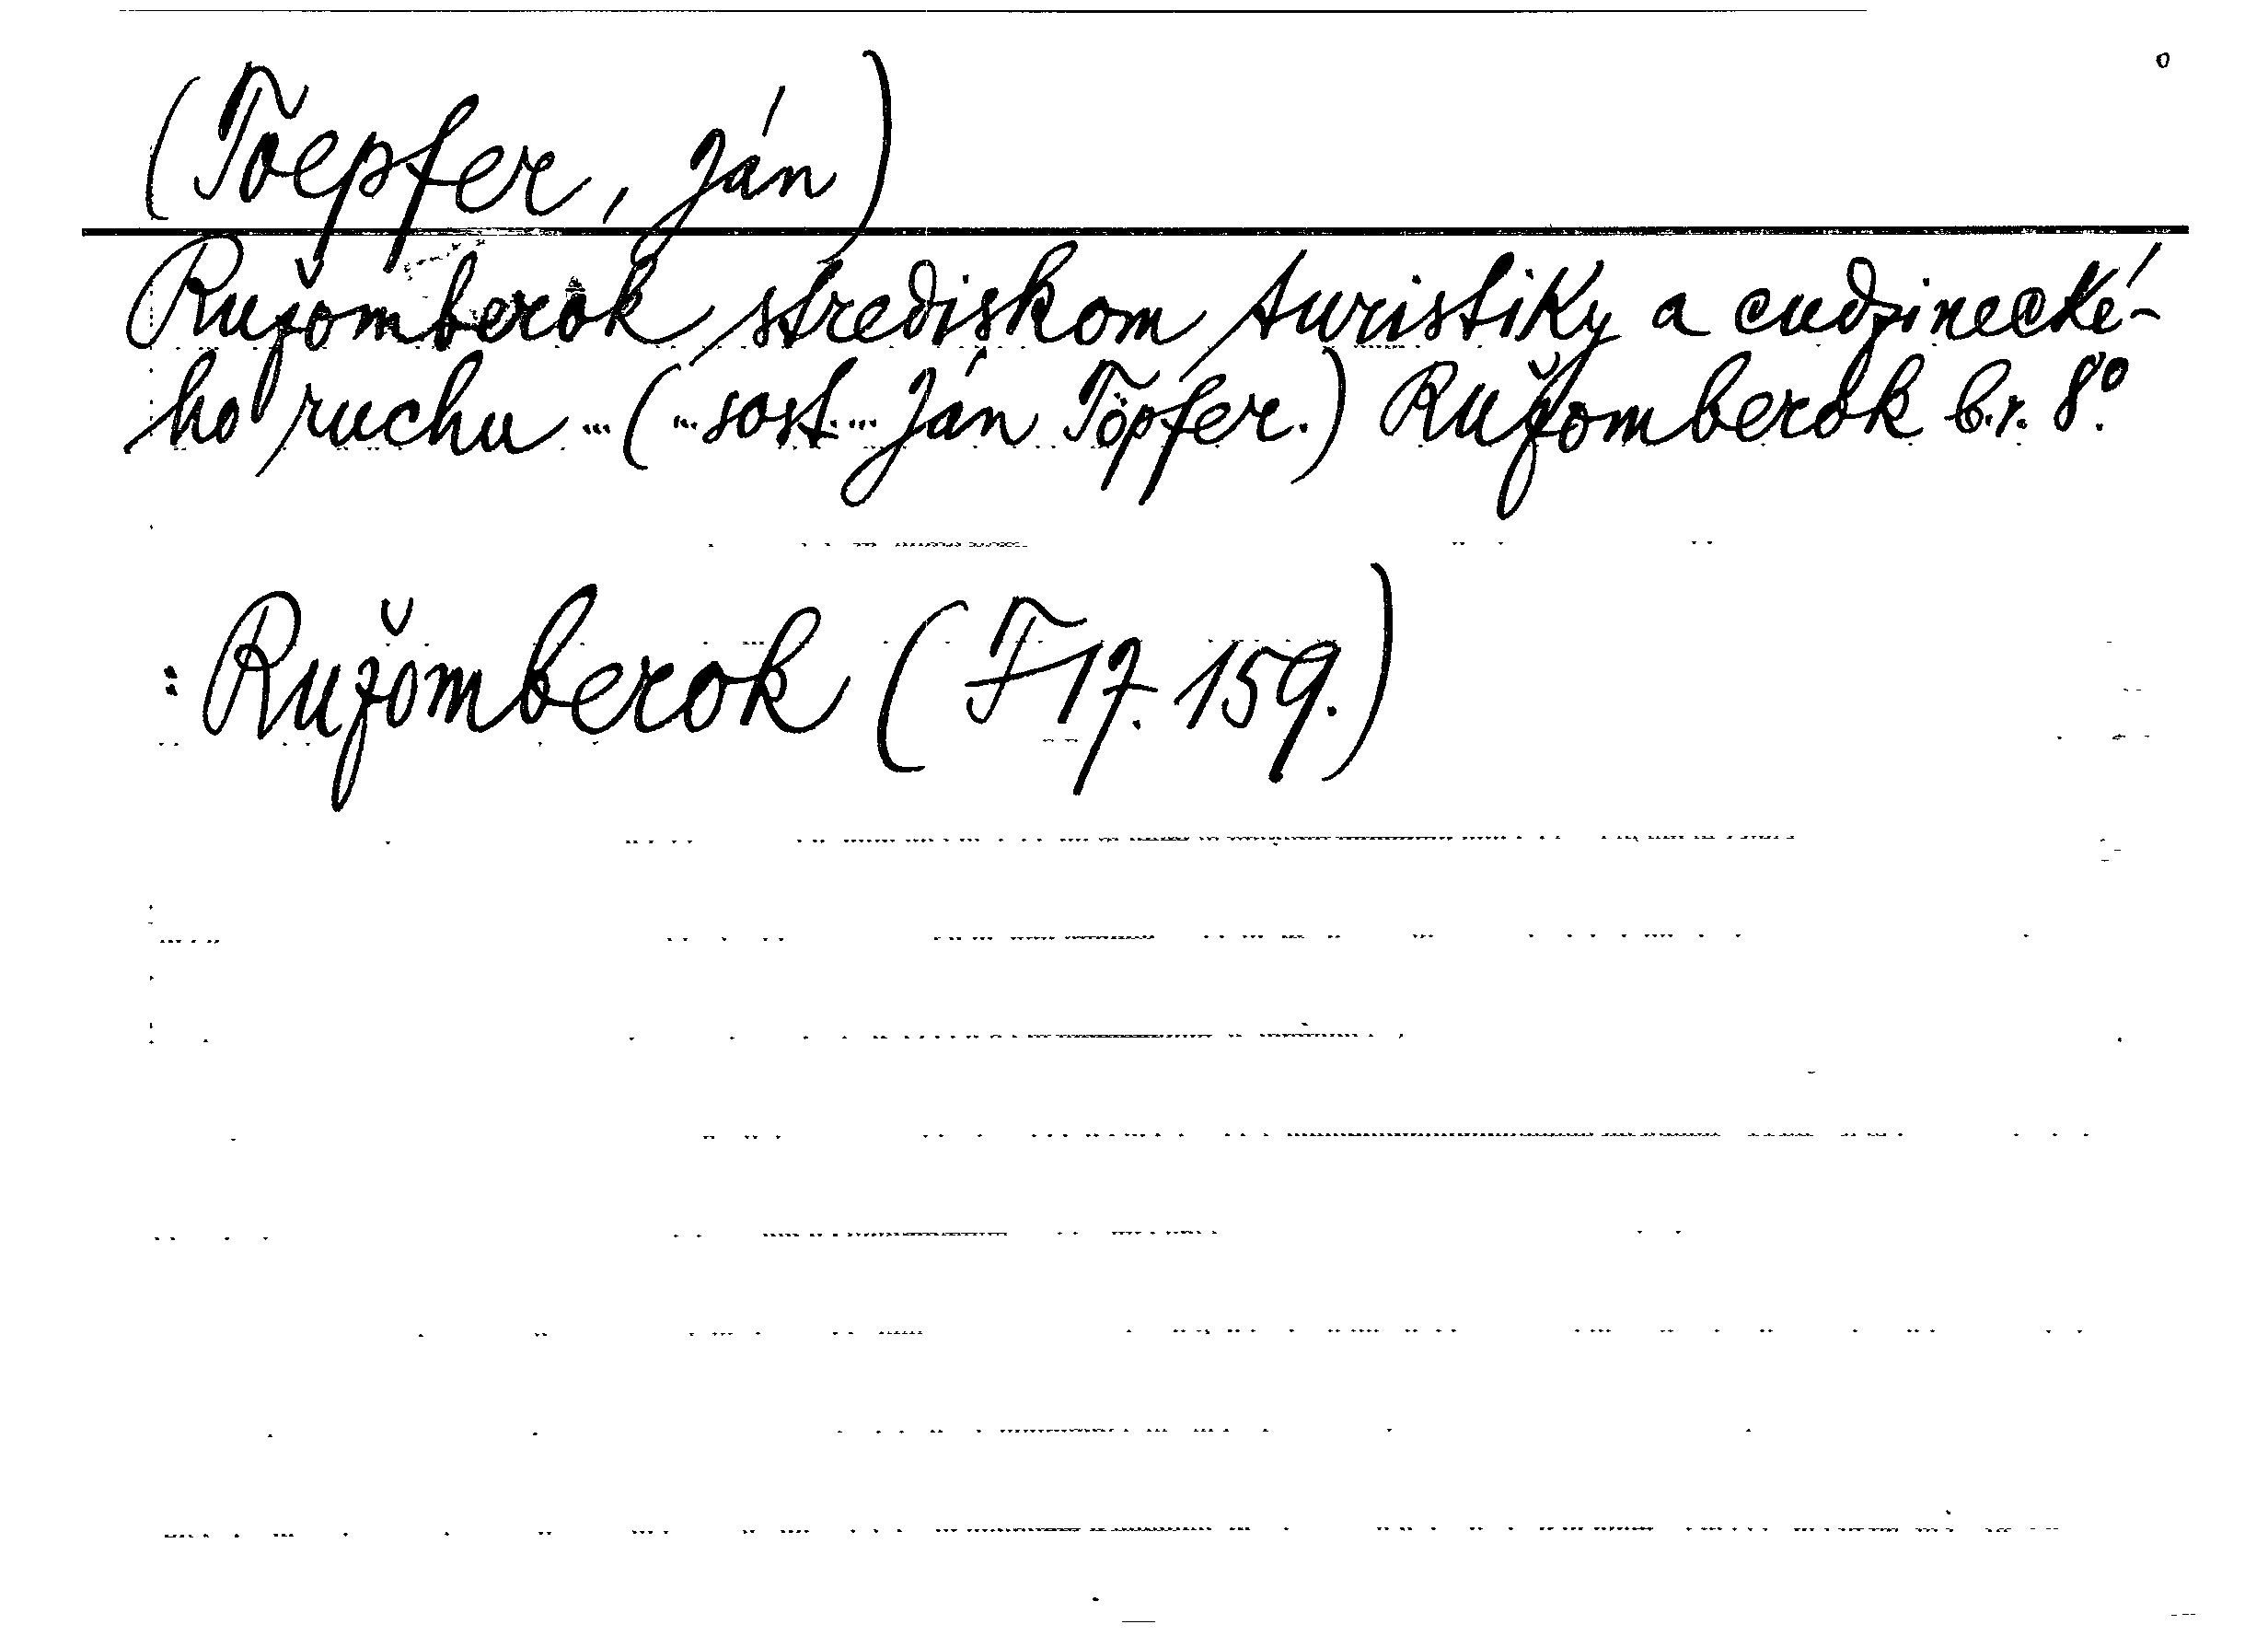 (Toepfer, Ján)
Ružomberok strediskom turistiky a cudzinecké-
ho ruchu ... (... sost. ... Ján Töpfer.) Ružomberok b.r. 8°.
: Ružomberok (F 17. 159.)